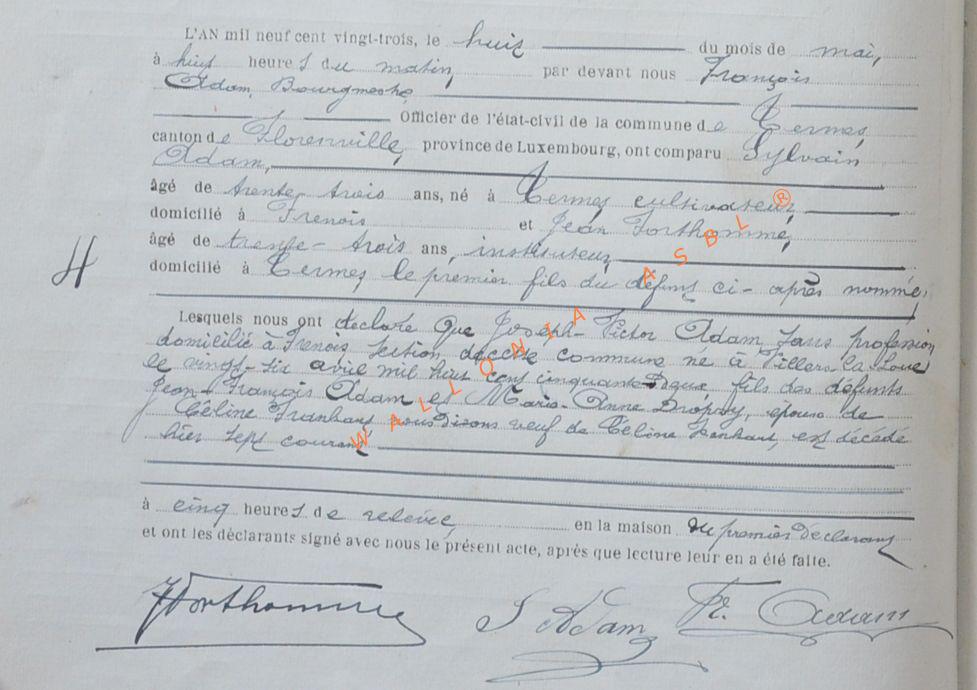 L'AN mil neuf cent vingt-trois, le huit du mois de mai,
à huit heures du matin, par devant nous François
Adam, Bourgmestre,
Officier de l'état-civil de la commune de Termes,
canton de Florenville, province de Luxembourg, ont comparu Sylvain
Adam,
âgé de trente trois ans, né à Termes cultivateur,
domicilié à Frenois et Jean Forthomme,
âgé de trente-trois ans, instituteur,
4
domicilié à Termes le premier fils du défunt ci-après nommé,
Lesquels nous ont déclaré que Joseph-Victor Adam, sans profession
domicilié à Frenois section de cette commune né à Villers la Loue
le vingt-six avril mil huit cent cinquante deux, fils des défunts
Jean-François Adam et Marie-Anne Dropsy, époux de
Céline nous disons veuf de Céline, est décédé
hier sept courant
à cinq heures de relevée, en la maison du premier déclarant
et ont les déclarants signé avec nous le présent acte, après que lecture leur en a été faite.
JForthomme S Adam Fr. Adam
WALLONIA ASBL ®